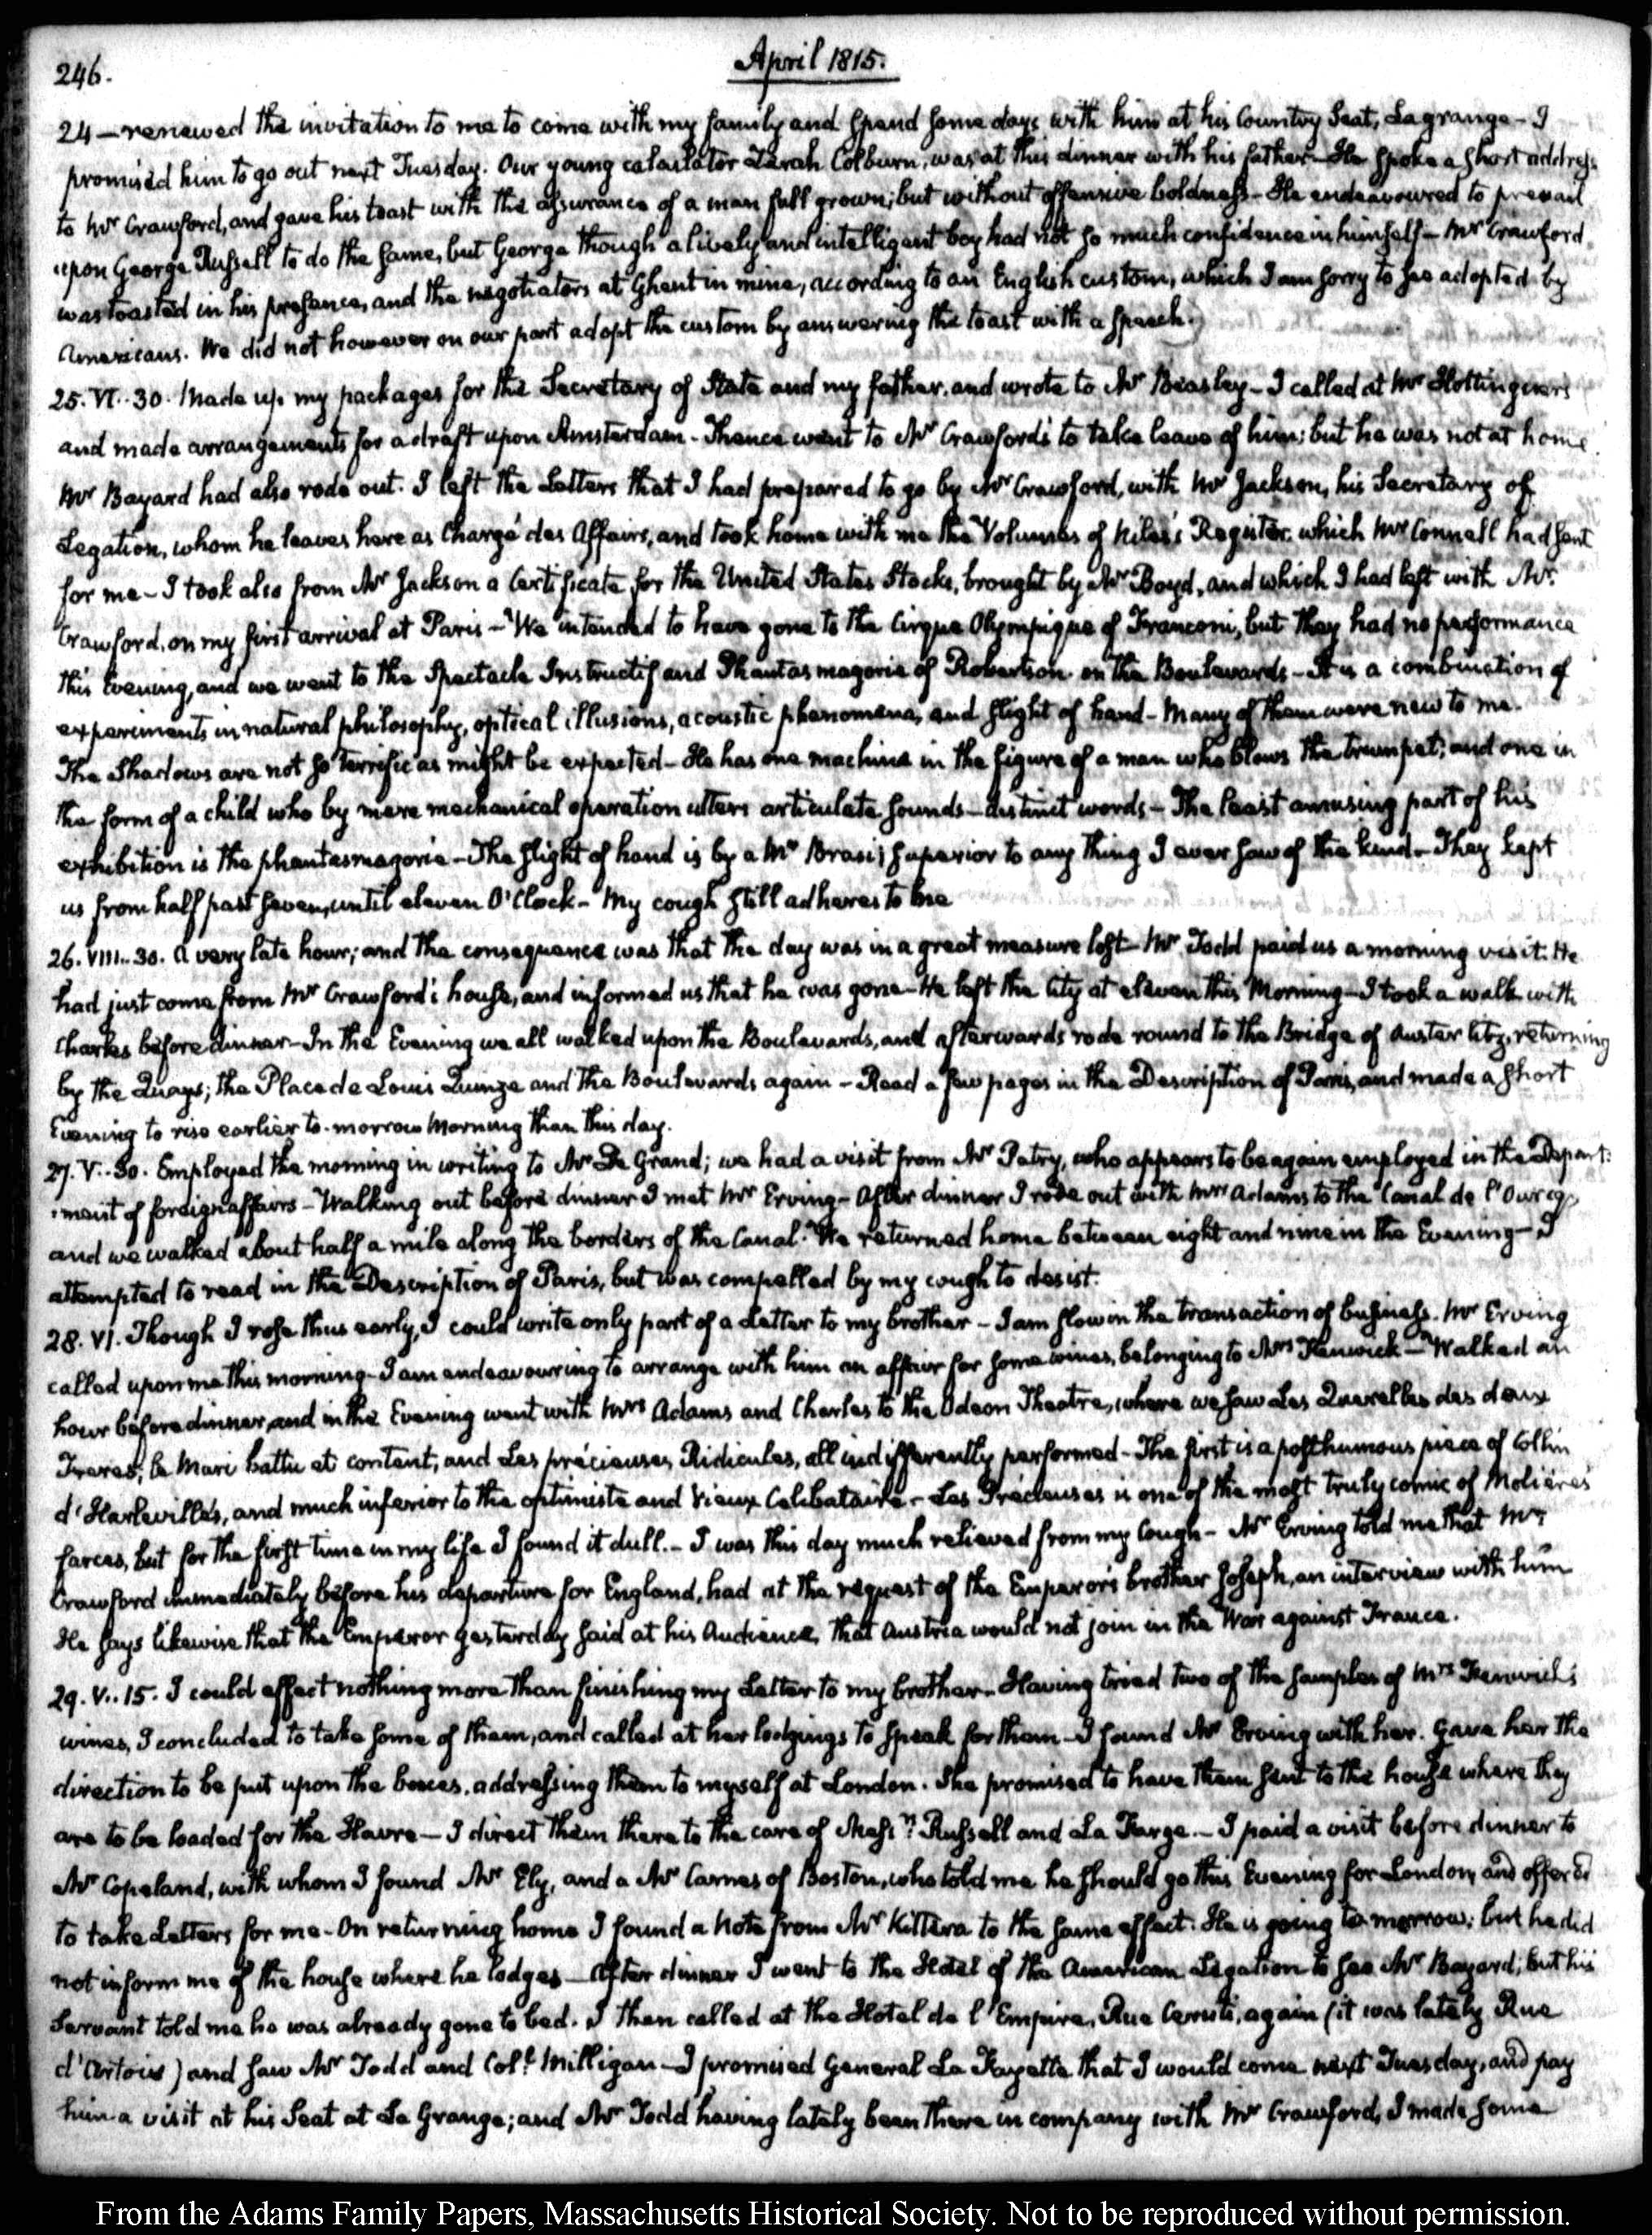 246.
April 1815.
24 — renewed the invitation to me to come with my family and spend some days with him at his Country Seat, Lagrange — I
promised him to go out next Tuesday. Our young calculator Zerah Colburn, was at this dinner with his father — He spoke a short address
to Mr Crawford, and gave his toast with the assurance of a man full grown; but without offensive boldness — He endeavoured to prevail
upon George Russell to do the same, but George though a lively and intelligent boy had not so much confidence in himself — Mr Crawford
was toasted in his presence, and the negotiators at Ghent in mine, according to an English custom, which I am sorry to see adopted by
Americans. We did not however on our part adopt the custom by answering the toast with a speech.
25. VI..30. Made up my packages for the Secretary of State and my father, and wrote to Mr Beasley — I called at Mr Hottinguer's
and made arrangements for a draft upon Amsterdam. Thence went to Mr Crawford's to take leave of him; but he was not at home
Mr Bayard had also rode out. I left the Letters that I had prepared to go by Mr Crawford, with Mr Jackson, his Secretary of
Legation, whom he leaves here as Chargé des Affairs, and took home with me the Volumes of Niles's Register which Mr Connell had sent
for me — I took also from Mr Jackson a Certificate for the United States Stocks, brought by Mr Boyd, and which I had left with Mr
Crawford, on my first arrival at Paris — We intended to have gone to the Cirque Olympique of Franconi, but they had no performance
this Evening, and we went to the Spectacle Instructif and Phantasmagoria of Robertson on the Boulevards — It is a combination of
experiments in natural philosophy, optical illusions, acoustic phenomena, and slight of hand — Many of them were new to me.
The Shadows are not so terrific as might be expected — He has one machine in the figure of a man who blows the trumpet; and one in
the form of a child who by mere mechanical operation utters articulate sounds — distinct words — The least amusing part of his
exhibition is the phantasmagoria — The slight of hand is by a Mr Brasi; superior to any thing I ever saw of the kind — They kept
us from half past seven, until eleven O'Clock — My cough still adheres to me
26. VIII..30. A very late hour; and the consequence was that the day was in a great measure lost — Mr Todd paid us a morning visit. He
had just come from Mr Crawford's house, and informed us that he was gone — He left the City at eleven this Morning — I took a walk with
Charles before dinner — In the Evening we all walked upon the Boulevards, and afterwards rode round to the Bridge of Austerlitz, returning
by the Quays; the Place de Louis Quinze and the Boulevards again — Read a few pages in the Description of Paris, and made a short
Evening to rise earlier to-morrow Morning than this day.
27. V..30. Employed the morning in writing to Mr De Grand; we had a visit from Mr Petry, who appears to be again employed in the Depart:
:ment of foreign affairs — Walking out before dinner I met Mr Erving — After dinner I rode out with Mrs Adams to the Canal de l'Ourcq,
and we walked about half a mile along the borders of the Canal. We returned home between eight and nine in the Evening — I
attempted to read in the Description of Paris, but was compelled by my cough to desist.
28. VI. Though I rose thus early, I could write only part of a Letter to my brother — I am slow in the transaction of business. Mr Erving
called upon me this morning — I am endeavouring to arrange with him an affair for some wines, belonging to Mrs Fenwick — Walked an
hour before dinner, and in the Evening went with Mrs Adams and Charles to the Odeon Theatre, where we saw Les Querelles des deux
Freres; le Mari battu et content; and Les précieuses Ridicules, all indifferently performed — The first is a posthumous piece of Collin
d'Harleville's, and much inferior to the optimiste and Vieux Celibataire — Les Précieuses is one of the most truly comic of Moliere's
farces, but for the first time in my life I found it dull. — I was this day much relieved from my Cough — Mr Erving told me that Mr
Crawford immediately before his departure for England, had at the request of the Emperor's brother Joseph, an interview with him
He says likewise that the Emperor yesterday said at his Audience, that Austria would not join in the War against France.
29. V..15. I could effect nothing more than finishing my Letter to my brother — Having tried two of the samples of Mrs Fenwick's
wines, I concluded to take some of them, and called at her lodgings to speak for them — I found Mr Erving with her. Gave her the
direction to be put upon the boxes, addressing them to myself at London. She promised to have them sent to the house where they
are to be loaded for the Havre — I direct them there to the care of Messrs Russell and La Farge. — I paid a visit before dinner to
Mr Copeland, with whom I found Mr Ely, and a Mr Carnes of Boston, who told me he should go this Evening for London, and offered
to take Letters for me — On returning home I found a Note from Mr Kittera to the same effect. He is going to-morrow; but he did
not inform me of the house where he lodges — After dinner I went to the Hotel of the American Legation to see Mr Bayard; but his
Servant told me he was already gone to bed. I then called at the Hotel de l'Empire, Rue Cerruti, again (it was lately Rue
d'Artois) and saw Mr Todd and Coll. Milligan — I promised General La Fayette that I would come next Tuesday, and pay
him a visit at his Seat at La Grange; and Mr Todd having lately been there in company with Mr Crawford, I made some
From the Adams Family Papers, Massachusetts Historical Society. Not to be reproduced without permission.